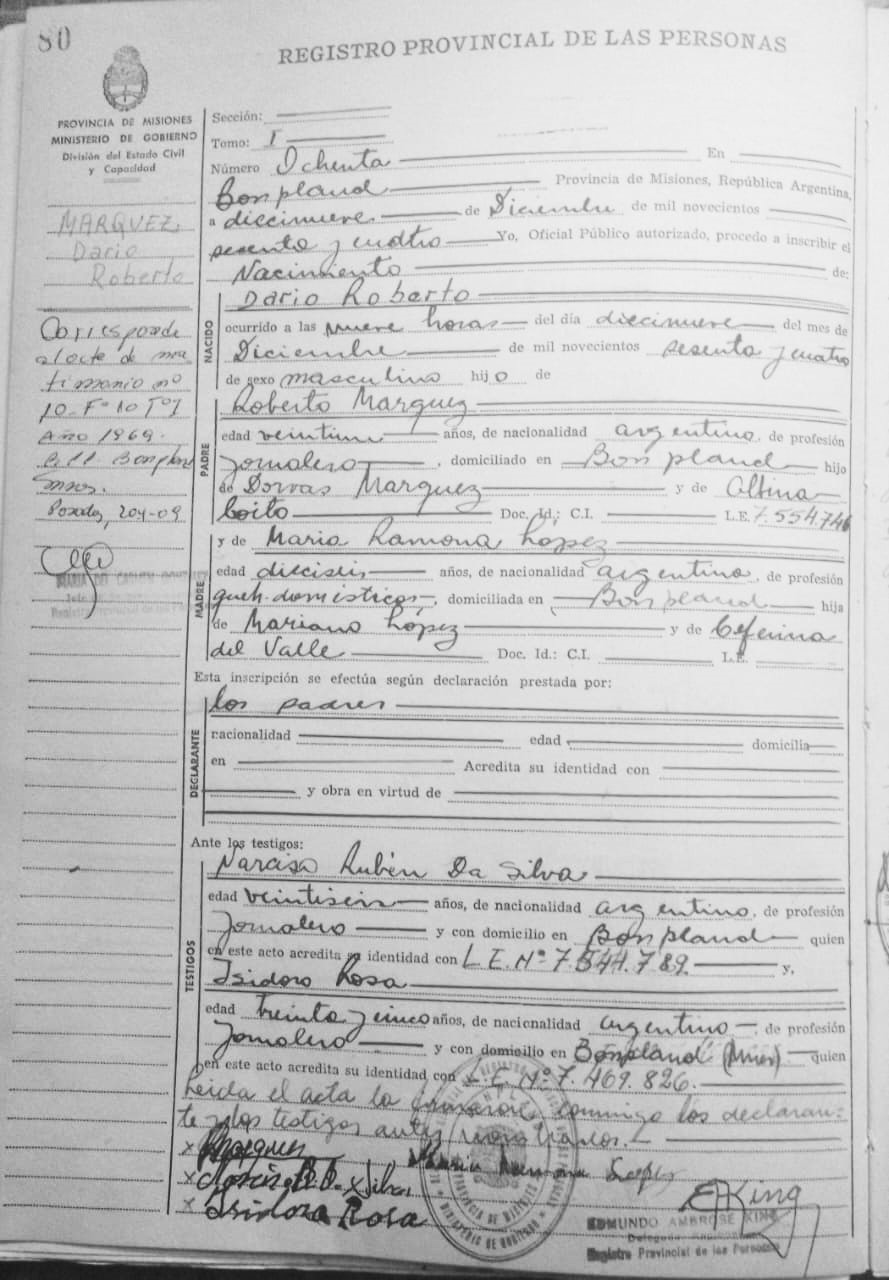 80
REGISTRO PROVINCIAL DE LAS PERSONAS
PROVINCIA DE MISIONES
MINISTERIO DE GOBIERNO
División del Estado Civil
y Capacidad
MARQUEZ
Dario
Roberto
Corresponde
al acta de ma
trimonio nº
10 Fº 10 Tº I
Año 1969.
Posadas, 204-09
Sección:
Tomo: I
Número Ochenta En
Bonpland Provincia de Misiones, República Argentina,
a diecinueve de Diciembre de mil novecientos
sesenta y cuatro Yo, Oficial Público autorizado, procedo a inscribir el
Nacimiento de:
NACIDO
Dario Roberto
ocurrido a las nueve horas del día diecinueve del mes de
Diciembre de mil novecientos sesenta y cuatro
de sexo masculino hijo de
PADRE
Roberto Marquez
edad años, de nacionalidad argentino, de profesión
Jornalero, domiciliado en Bonpland hijo
de Marquez y de Albina
Doc. Id.: C.I. L.E. 7.554.746
MADRE
y de Maria Ramona Lopez
edad dieciseis años, de nacionalidad argentina, de profesión
queh. domésticos, domiciliada en Bonpland hija
de Mariano López y de Ceferina
del Valle Doc. Id.: C.I. L.E.
Esta inscripción se efectúa según declaración prestada por:
los padres
DECLARANTE
nacionalidad edad domicilia
en Acredita su identidad con
y obra en virtud de
Ante los testigos:
TESTIGOS
Narciso Rubén Da Silva
edad veintiseis años, de nacionalidad argentino, de profesión
Jornalero y con domicilio en Bonpland quien
en este acto acredita su identidad con L.E. Nº 7.544.789. y,
Isidoro Rosa
edad treinta y cinco años, de nacionalidad argentino de profesión
Jornalero y con domicilio en Bonpland quien
en este acto acredita su identidad con L.E. Nº 7.469.826.
Leida el acta la firmaron conmigo los declaran-
te y los testigos
Isidoro Rosa
EKing
EDMUNDO AMBROSE KING
Registro Provincial de las Personas